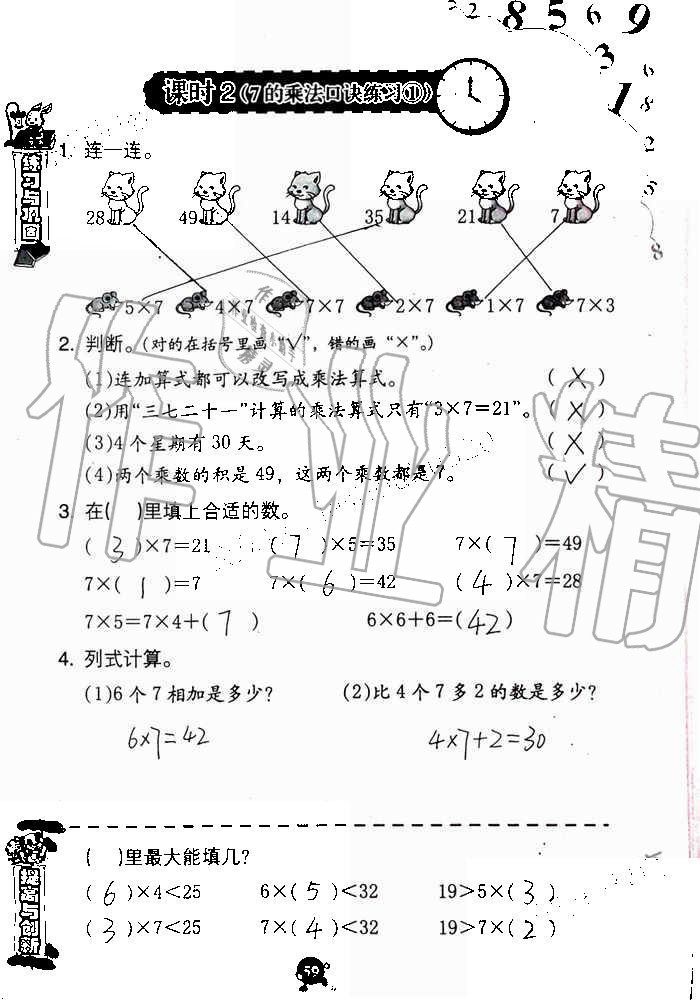 2 8 5 6 9
3 1 6 8 2 5 8
课时2(7的乘法口诀练习①)
练习与巩固
1. 连一连。
28 49 14 35 21 7
5×7 4×7 7×7 2×7 1×7 7×3
2. 判断。(对的在括号里画“√”,错的画“×”。)
(1)连加算式都可以改写成乘法算式。 ( × )
(2)用“三七二十一”计算的乘法算式只有“3×7=21”。 ( × )
(3)4个星期有30天。 ( × )
(4)两个乘数的积是49，这两个乘数都是7。 ( √ )
3. 在( )里填上合适的数。
( 3 )×7=21 ( 7 )×5=35 7×( 7 )=49
7×( 1 )=7 7×( 6 )=42 ( 4 )×7=28
7×5=7×4+( 7 ) 6×6+6=( 42 )
4. 列式计算。
(1)6个7相加是多少? (2)比4个7多2的数是多少?
6×7=42 4×7+2=30
提高与创新
( )里最大能填几?
( 6 )×4<25 6×( 5 )<32 19>5×( 3 )
( 3 )×7<25 7×( 4 )<32 19>7×( 2 )
59
作业精